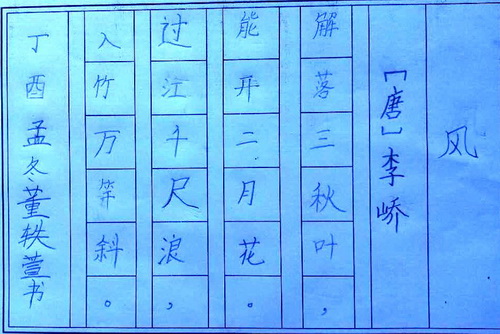 风
[唐]李峤
解落三秋叶，
能开二月花。
过江千尺浪，
入竹万竿斜。
丁酉孟冬董轶萱书